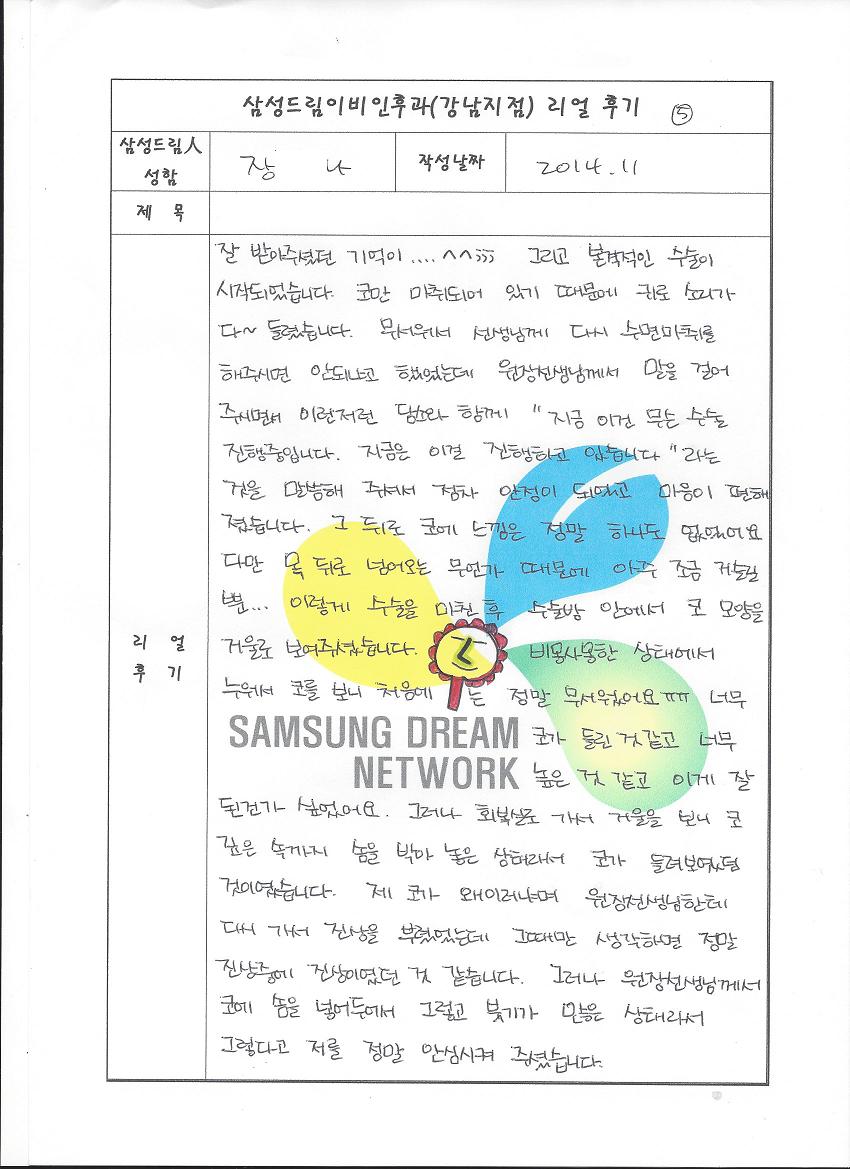 삼성드림이비인후과(강남지점) 리얼 후기 ⑤
삼성드림人 성함
장 나
작성날짜
2014.11
제 목
리 얼 후 기
잘 받아주셨던 기억이.... ^^;;; 그리고 본격적인 수술이
시작되었습니다. 코만 마취되어 있기 때문에 귀로 소리가
다~ 들렸습니다. 무서워서 선생님께 다시 수면마취를
해주시면 안되냐고 했었는데 원장선생님께서 말을 걸어
주시면서 이런저런 담소와 함께 "지금 이건 무슨 수술
진행중입니다. 지금은 이걸 진행하고 있습니다"라는
것을 말씀해 주셔서 점차 안정이 되었고 마음이 편해
졌습니다. 그 뒤로 코에 느낌은 정말 하나도 없었어요
다만 목 뒤로 넘어오는 무언가 때문에 아주 조금 거슬릴
뿐... 이렇게 수술을 마친 후 수술방 안에서 코 모양을
거울로 보여주셨습니다. 비몽사몽한 상태에서
누워서 코를 보니 처음에는 정말 무서웠어요ㅠㅠ 너무
코가 들린 것 같고 너무
높은 것 같고 이게 잘
SAMSUNG DREAM
NETWORK
된건가 싶었어요. 그러나 회복실로 가서 거울을 보니 코
깊은 속까지 솜을 박아 놓은 상태라서 코가 들려보였던
것이였습니다. 제 코가 왜이러냐며 원장선생님한테
다시 가서 진상을 부렸었는데 그때만 생각하면 정말
진상중에 진상이었던 것 같습니다. 그러나 원장선생님께서
코에 솜을 넣어두어서 그렇고 붓기가 많은 상태라서
그렇다고 저를 정말 안심시켜 주셨습니다.